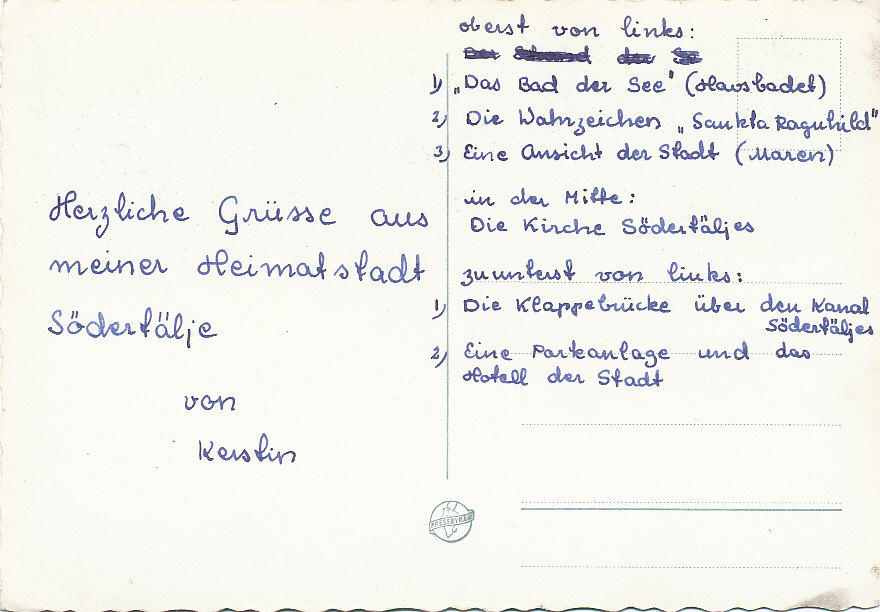 Herzliche Grüsse aus
meiner Heimatstadt
Södertälje
von
Kerstin
oberst von links:
Der Strand der Se
1) „Das Bad der See" (Havsbadet)
2) Die Wahrzeichen „Sankta Ragnhild"
3) Eine Ansicht der Stadt (Maren)
in der Mitte:
Die Kirche Södertäljes
zuunterst von links:
1) Die Klappebrücke über den Kanal
Södertäljes
2) Eine Parkanlage und das
Hotell der Stadt
PRESSBYRÅN